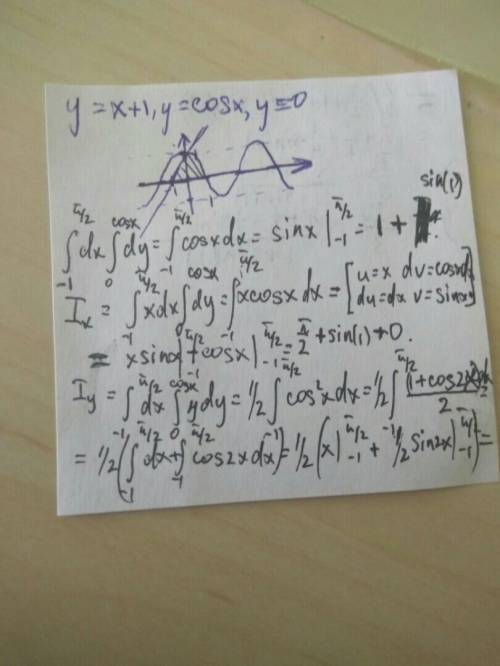 y = x+1, y = cosx, y = 0
-1 1
sin(1)
∫_{-1}^{π/2} dx ∫_0^{cosx} dy = ∫_{-1}^{π/2} cosx dx = sinx |_{-1}^{π/2} = 1 +
I_x = ∫_{-1}^{π/2} x dx ∫_0^{cosx} dy = ∫_{-1}^{π/2} x cosx dx = [u=x dv=cosxdx
du=dx v=sinx]
= x sinx |_{-1}^{π/2} + cosx |_{-1}^{π/2} = π/2 + sin(1) + 0.
I_y = ∫_{-1}^{π/2} dx ∫_0^{cosx} y dy = 1/2 ∫_{-1}^{π/2} cos²x dx = 1/2 ∫_{-1}^{π/2} (1+cos2x)dx / 2 =
= 1/2 (∫_{-1}^{π/2} dx + ∫_{-1}^{π/2} cos2x dx) = 1/2 (x |_{-1}^{π/2} + 1/2 sin2x |_{-1}^{π/2}) =